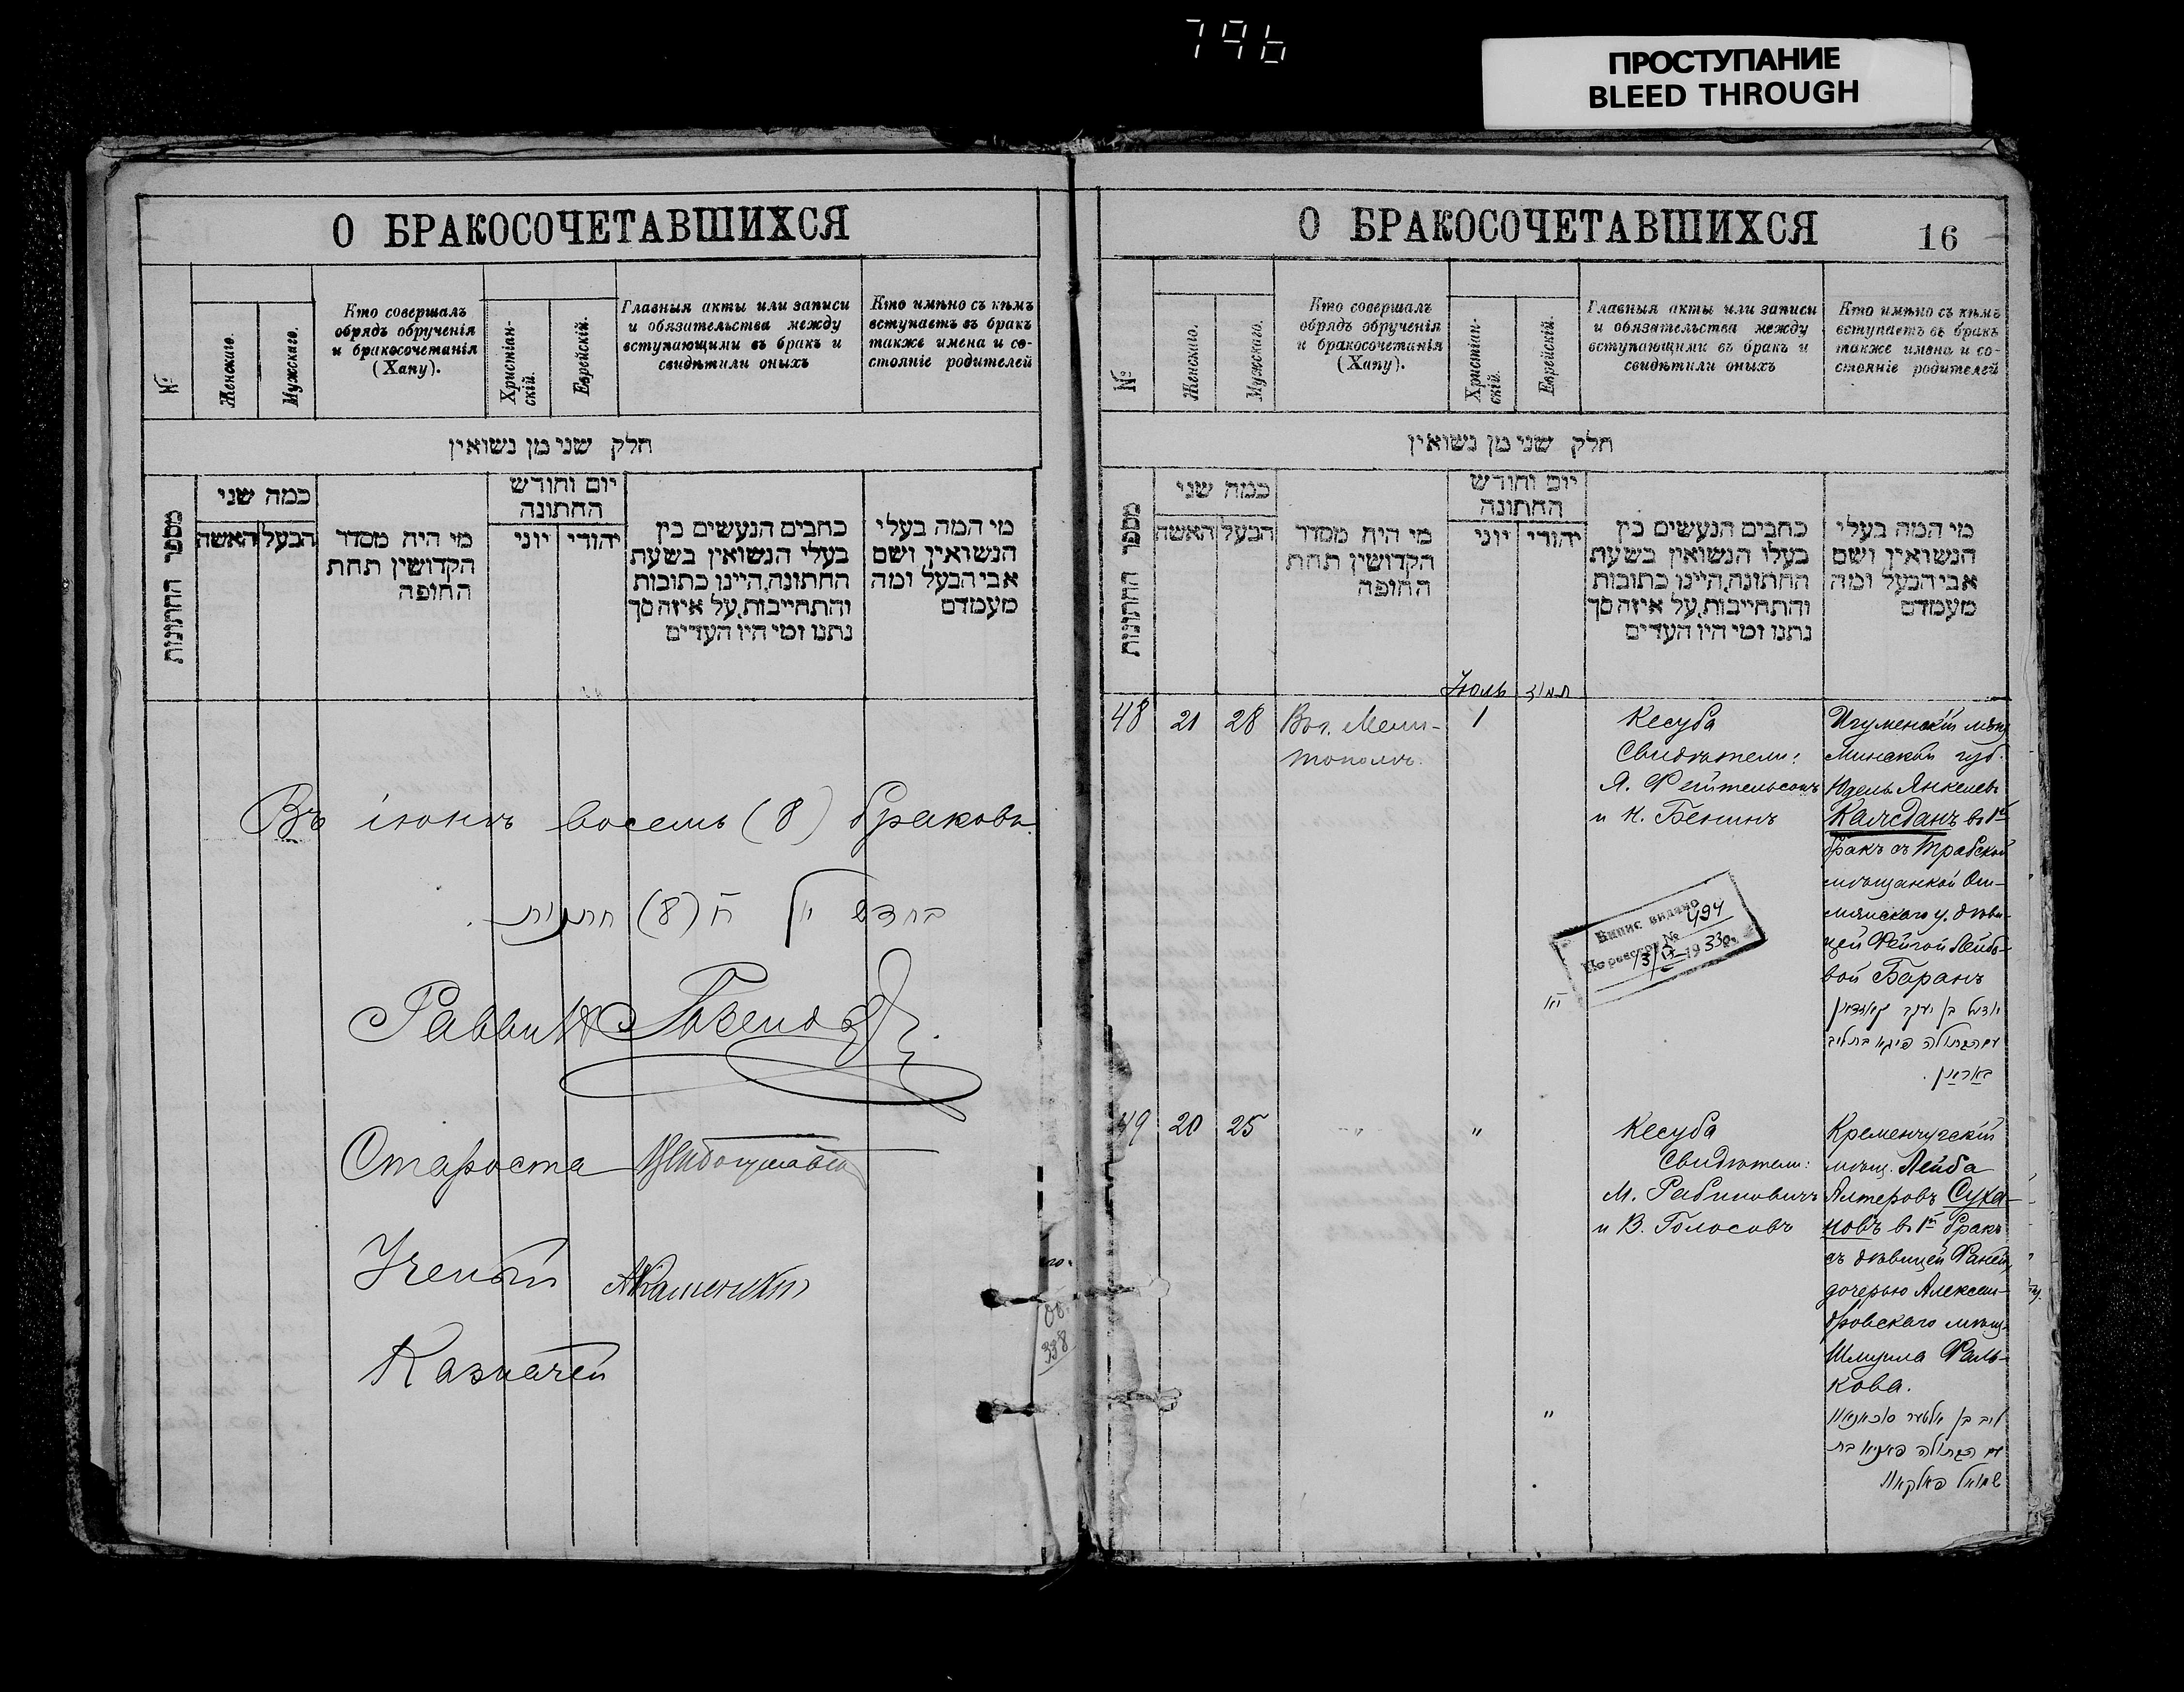 796
ПРОСТУПАНИЕ
BLEED THROUGH
О БРАКОСОЧЕТАВШИХСЯ
№
Женскаго.
Мужскаго.
Кто совершалъ
обрядъ обрученія
и бракосочетанія
(Хапу).
Христіан-
скій.
Еврейскій.
Главныя акты или записи
и обязательства между
вступающими въ бракъ и
свидѣтили оныхъ
Кто имѣно съ кѣмъ
вступаетъ въ бракъ
также имена и со-
стояніе родителей
חלק שני מן נשואין
מספר החתונות
כמה שני
האשה
הבעל
מי היה מסדר
הקדושין תחת
החופה
יום וחודש
החתונה
יוני
יהודי
כתבים הנעשים בין
בעלי הנשואין בשעת
החתונה, היינו כתובות
והתחייבות, על איזה סך
נתנו ומי היו העדים
מי המה בעלי
הנשואין ושם
אבי הבעל ומה
מעמדם
Въ іюнѣ восемь (8) браковъ
בחדש יוני ח (8) חתונות.
Раввинъ
Староста
Ученый АКаменскій
Казначей
338
О БРАКОСОЧЕТАВШИХСЯ
16
№
Женскаго.
Мужскаго.
Кто совершалъ
обрядъ обрученія
и бракосочетанія
(Хапу).
Христіан-
скій.
Еврейскій.
Главныя акты или записи
и обязательства между
вступающими въ бракъ и
свидѣтили оныхъ
Кто имѣно съ кѣмъ
вступаетъ въ бракъ
также имена и со-
стояніе родителей
חלק שני מן נשואין
מספר החתונות
כמה שני
האשה
הבעל
מי היה מסדר
הקדושין תחת
החופה
יום וחודש
החתונה
יוני
יהודי
כתבים הנעשים בין
בעלי הנשואין בשעת
החתונה, היינו כתובות
והתחייבות, על איזה סך
נתנו ומי היו העדים
מי המה בעלי
הנשואין ושם
אבי הבעל ומה
מעמדם
Іюль
תמוז
48
21
28
Въ г. Мели-
тополѣ.
1
Кесуба
Свидѣтели:
Я. Фейтельсонъ
и Н. Бенинъ
Игуменскій мѣщ.
Минской губ.
Юдель Янкелевъ
Калсданъ въ 1й
бракъ съ Трабской
мѣщанкой Ош-
мянскаго у. дѣви-
цей Фейгой Лейбо-
вой Баранъ
יודל בן יעקב
עם הבתולה פייגא בת ליב
באראן.
Випис видано
По реестру № 494
13/IX 1933 р.
49
20
25
"
"
Кесуба
Свидѣтели:
М. Рабиновичъ
и В. Голосовъ
Кременчугскій
мѣщ. Лейба
Алтеровъ Суха-
новъ въ 1й бракъ
съ дѣвицей Фаней,
дочерью Алексан-
дровскаго мѣщ.
Шмуила Фаль-
кова.
"
ליב בן אלטער סוכאנאוו
עם הבתולה פאניא בת
שמואל פאלקאוו